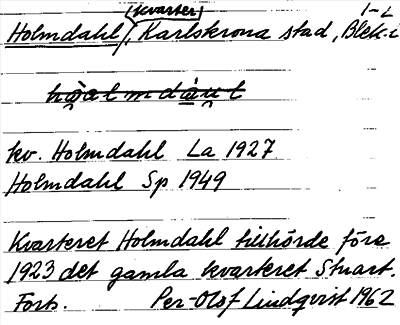 1-L
(kvarter)
Holmdahl, Karlskrona stad, Blek.
kv. Holmdahl La 1927
Holmdahl Sp 1949
Kvarteret Holmdahl tillhörde före
1923 det gamla kvarteret Stuart.
Forts. Per-Olof Lindqvist 1962